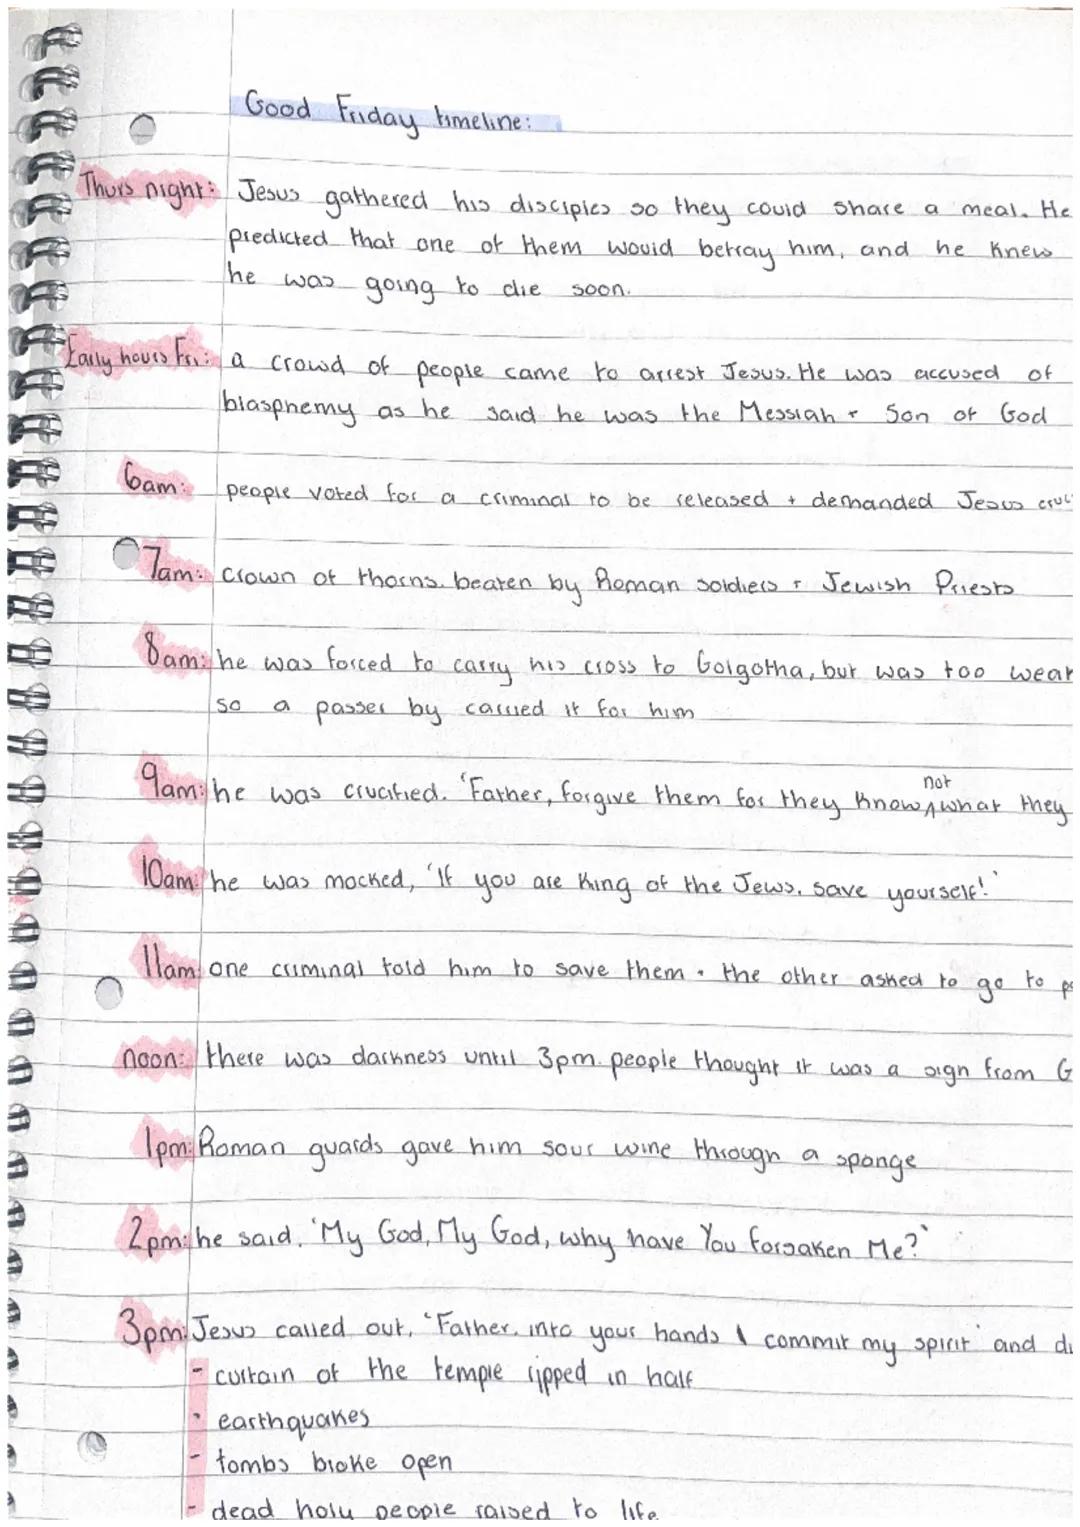 Good Friday timeline:
Thurs night: Jesus gathered his disciples so they could share a meal. He
predicted that one of them would betray him, and he knew
he was going to die soon.
Early hours Fri: a crowd of people came to arrest Jesus. He was accused of
blasphemy as he said he was the Messiah + Son of God
6am: people voted for a criminal to be released + demanded Jesus
7am: crown of thorns. beaten by Roman soldiers + Jewish Priests
8am: he was forced to carry his cross to Golgotha, but was too
so a passer by carried it for him
not
9am: he was crucified. 'Father, forgive them for they know what they
10am: he was mocked, 'If you are King of the Jews, save yourself!'
11am: one criminal told him to save them. the other asked to go to
noon: there was darkness until 3pm. people thought it was a sign from G
1pm: Roman guards gave him sour wine through a sponge
2pm: he said, 'My God, My God, why have You forsaken Me?'
3pm: Jesus called out, 'Father, into your hands I commit my spirit' and
- curtain of the temple ripped in half
- earthquakes
- tombs broke open
- dead holy people raised to life